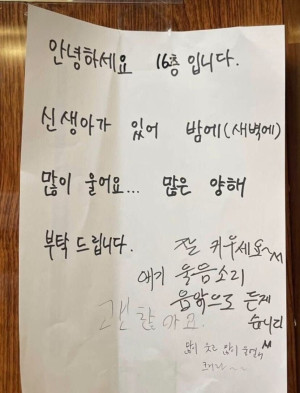 안녕하세요 16층 입니다.
신생아가 있어 밤에(새벽에)
많이 울어요... 많은 양해
부탁 드립니다.
잘 키우세요~^^
애기 울음소리
음악으로 듣겠
습니다
괜찮아요.
많이 웃고 많이